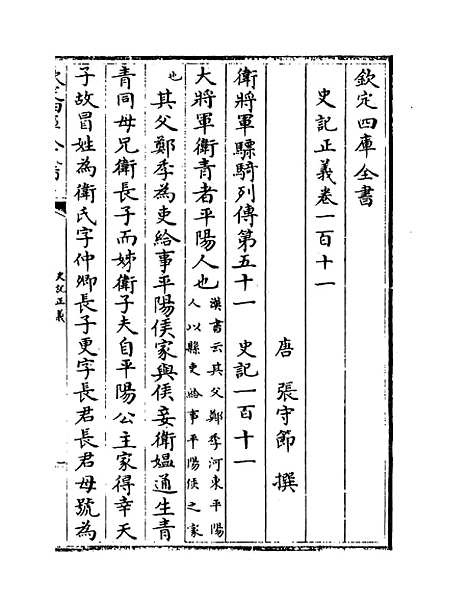 欽定四庫全書
史記正義卷一百十一
唐 張守節 撰
衛將軍驃騎列傳第五十一 史記一百十一
大將軍衛青者平陽人也漢書云其父鄭季河東平陽人以縣吏給事平陽侯之家
也其父鄭季為吏給事平陽侯家與侯妾衛媼通生青
青同母兄衛長子而姊衛子夫自平陽公主家得幸天
子故冒姓為衛氏字仲卿長子更字長君長君母號為
史記正義
一